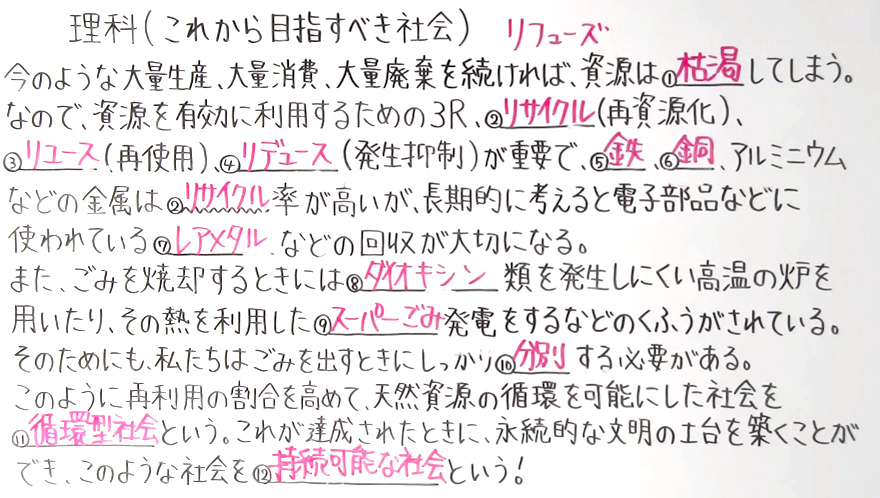 理科(これから目指すべき社会) リフューズ
今のような大量生産、大量消費、大量廃棄を続ければ、資源は①枯渇してしまう。
なので、資源を有効に利用するための3R、②リサイクル(再資源化)、
③リユース(再使用)、④リデュース(発生抑制)が重要で、⑤鉄、⑥銅、アルミニウム
などの金属は②リサイクル率が高いが、長期的に考えると電子部品などに
使われている⑦レアメタルなどの回収が大切になる。
また、ごみを焼却するときには⑧ダイオキシン類を発生しにくい高温の炉を
用いたり、その熱を利用した⑨スーパーごみ発電をするなどのくふうがされている。
そのためにも、私たちはごみを出すときにしっかり⑩分別する必要がある。
このように再利用の割合を高めて、天然資源の循環を可能にした社会を
⑪循環型社会という。これが達成されたときに、永続的な文明の土台を築くことが
でき、このような社会を⑫持続可能な社会という!